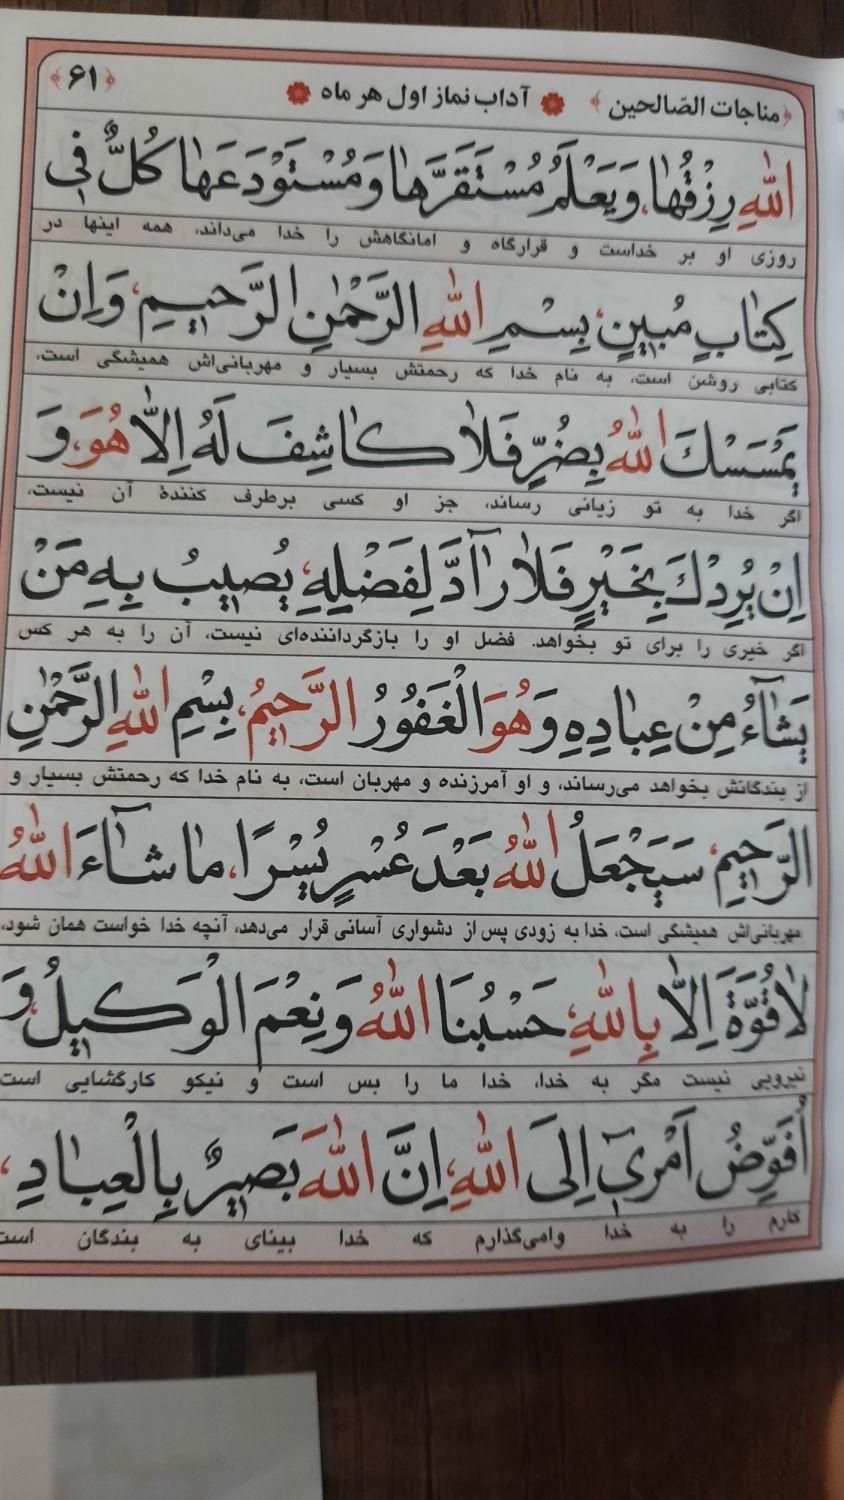 ﴿مناجات الصّالحین﴾ آداب نماز اول هر ماه ﴿۶۱﴾
اللّٰهِ رِزْقُهٰا، وَيَعْلَمُ مُسْتَقَرَّهٰا وَمُسْتَوْدَعَهٰا كُلٌّ فٖي
روزی او بر خداست و قرارگاه و امانگاهش را خدا می‌داند، همه اینها در
كِتٰابٍ مُبٖينٍ، بِسْمِ اللّٰهِ الرَّحْمٰنِ الرَّحٖيمِ، وَاِنْ
کتابی روشن است، به نام خدا که رحمتش بسیار و مهربانی‌اش همیشگی است،
يَمْسَسْكَ اللّٰهُ بِضُرٍّ فَلاٰ كٰاشِفَ لَهُ اِلاّٰ هُوَ، وَ
اگر خدا به تو زیانی رساند، جز او کسی برطرف کنندهٔ آن نیست،
اِنْ يُرِدْكَ بِخَيْرٍ فَلاٰ رٰآدَّ لِفَضْلِهِ، يُصٖيبُ بِهِ مَنْ
اگر خیری را برای تو بخواهد. فضل او را بازگرداننده‌ای نیست، آن را به هر کس
يَشٰآءُ مِنْ عِبٰادِهِ وَهُوَ الْغَفُورُ الرَّحٖيمُ، بِسْمِ اللّٰهِ الرَّحْمٰنِ
از بندگانش بخواهد می‌رساند، و او آمرزنده و مهربان است، به نام خدا که رحمتش بسیار و
الرَّحٖيمِ، سَيَجْعَلُ اللّٰهُ بَعْدَ عُسْرٍ يُسْرًا، مٰا شٰآءَ اللّٰهُ
مهربانی‌اش همیشگی است، خدا به زودی پس از دشواری آسانی قرار می‌دهد، آنچه خدا خواست همان شود،
لاٰ قُوَّةَ اِلاّٰ بِاللّٰهِ، حَسْبُنَا اللّٰهُ وَنِعْمَ الْوَكٖيلُ، وَ
نیرویی نیست مگر به خدا، خدا ما را بس است و نیکو کارگشایی است
اُفَوِّضُ اَمْرٖيٓ اِلَى اللّٰهِ، اِنَّ اللّٰهَ بَصٖيرٌ بِالْعِبٰادِ،
کارم را به خدا وامی‌گذارم که خدا بینای به بندگان است